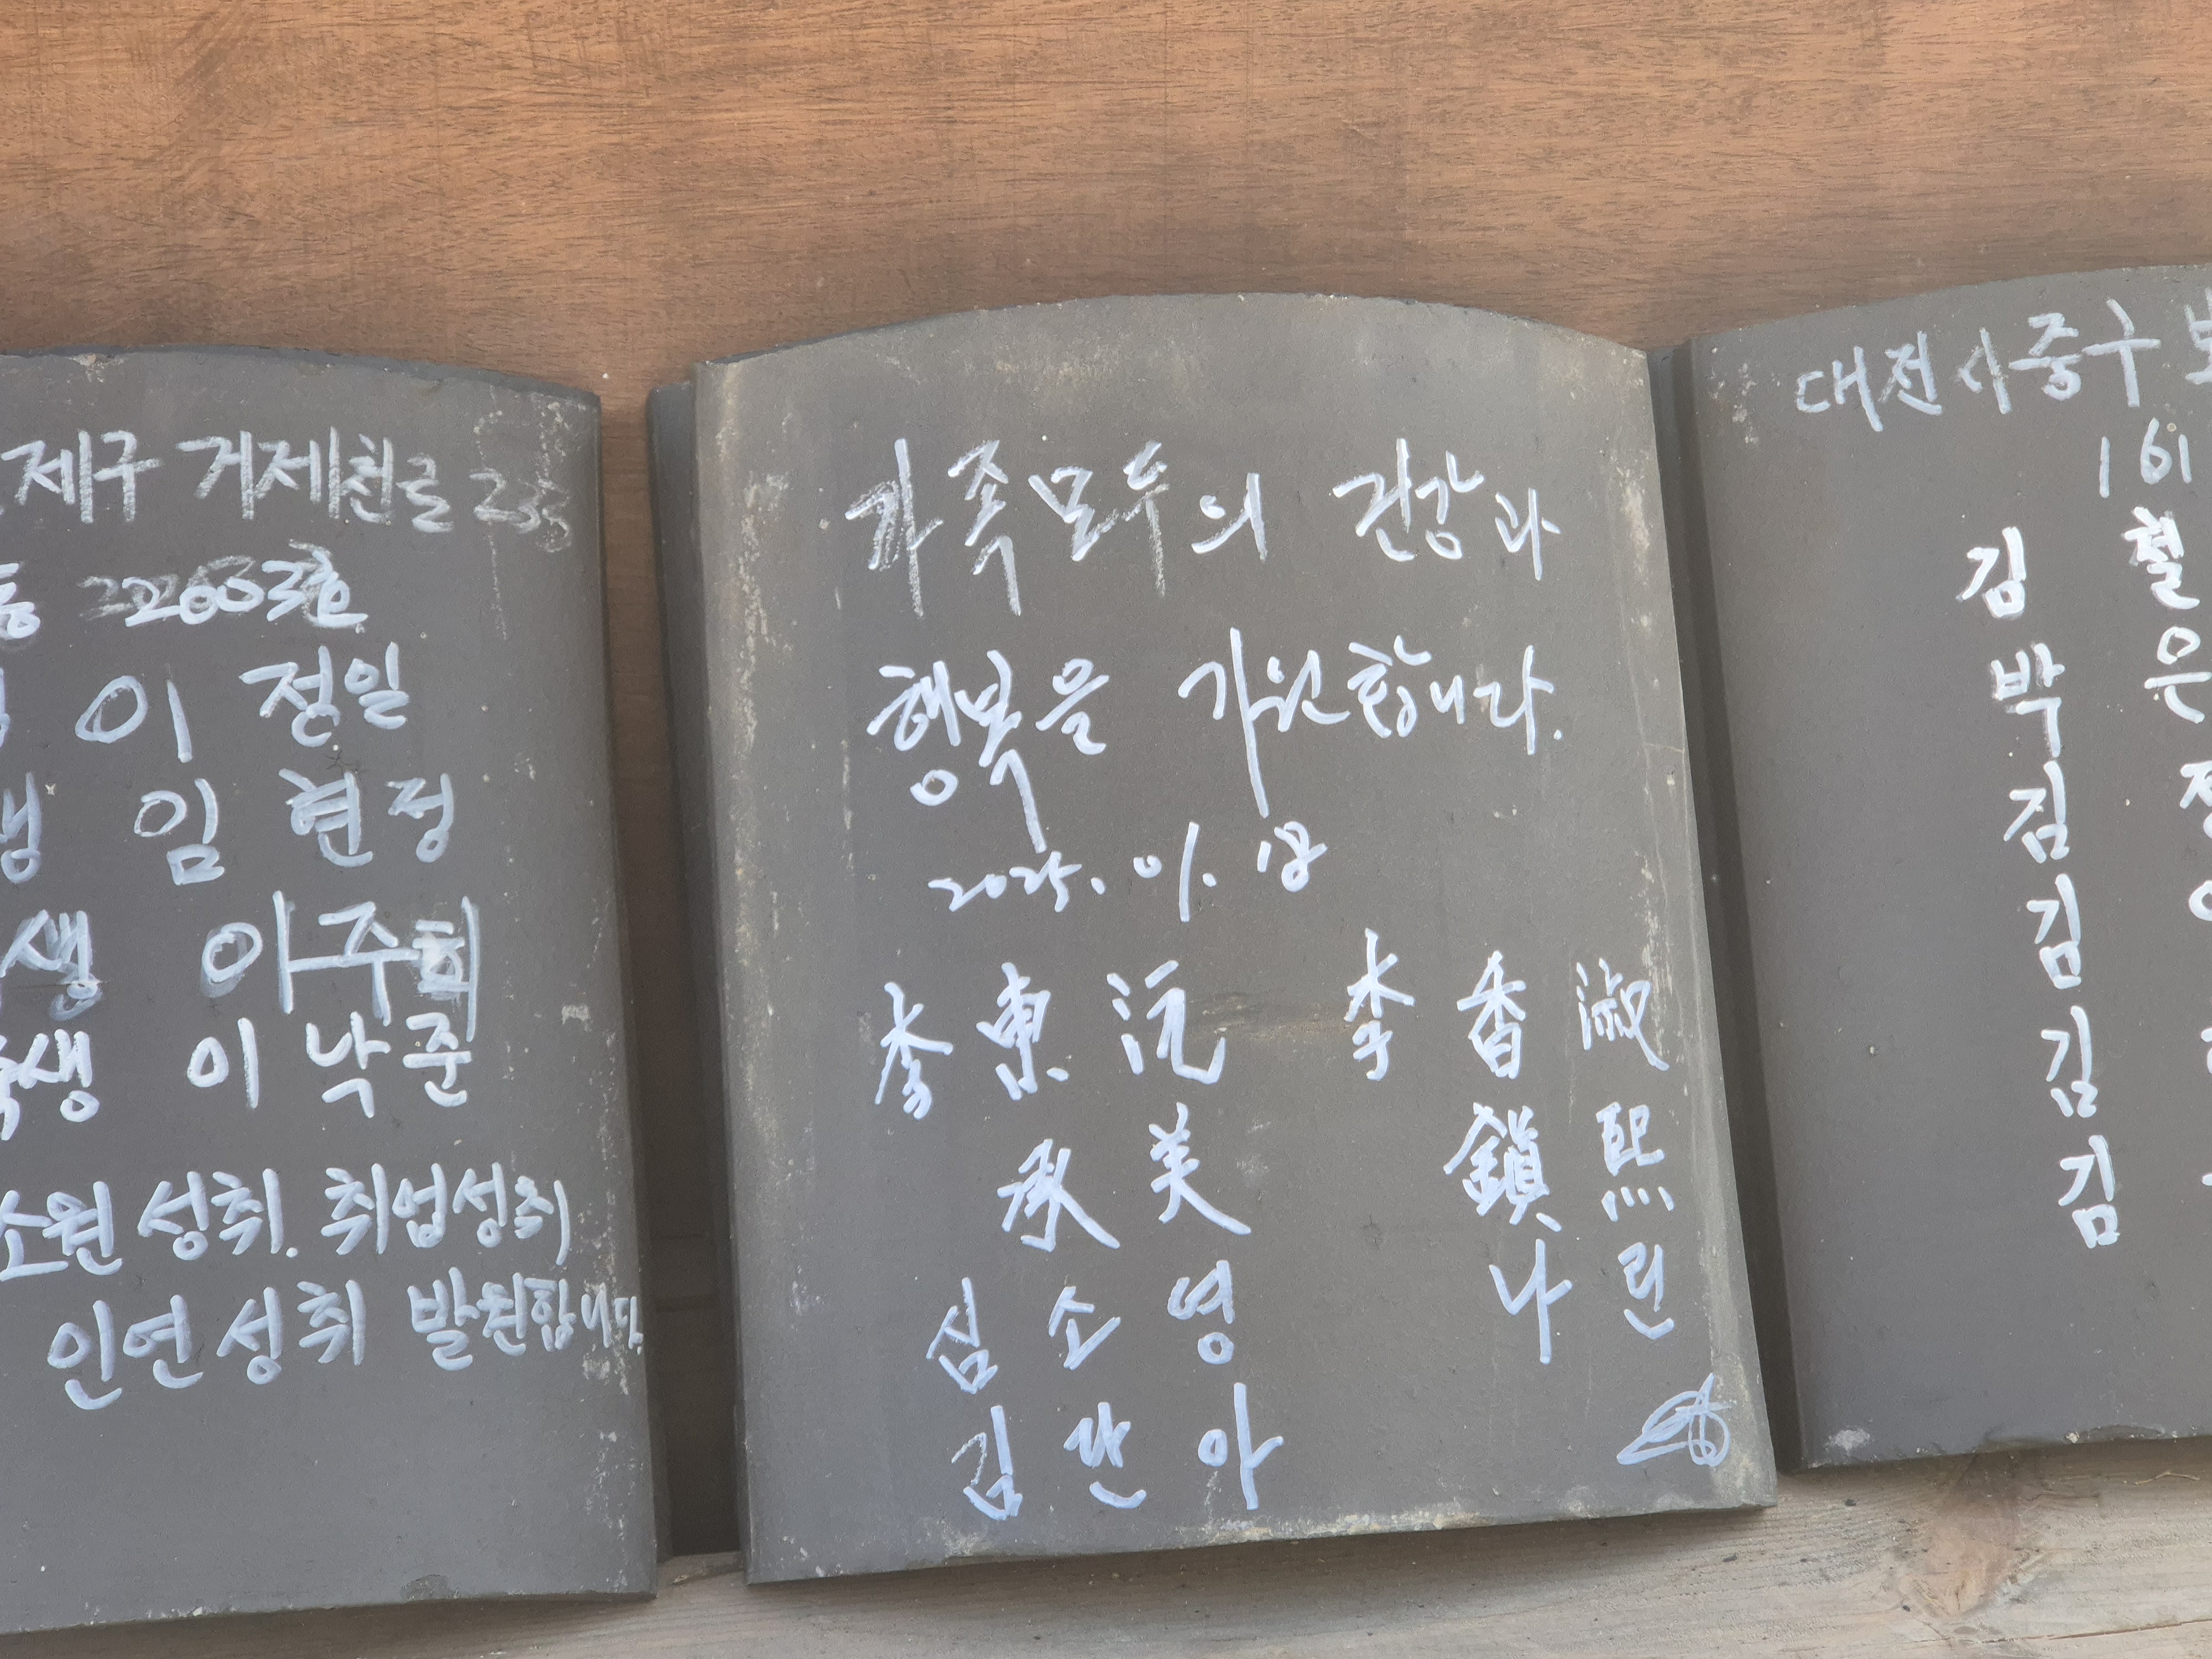 제구 거제천로 233
동 22603호
이 정일
생 임현정
생 이주희
생 이낙준
소원성취. 취업성취
인연성취 발원합니다.
가족모두의 건강과
행복을 기원합니다.
2025. 01. 18
李東沅 李香淑
承美 鎭熙
심소영 나린
김찬아
대전시중구
161
김 철
박 은
김
김
김
김